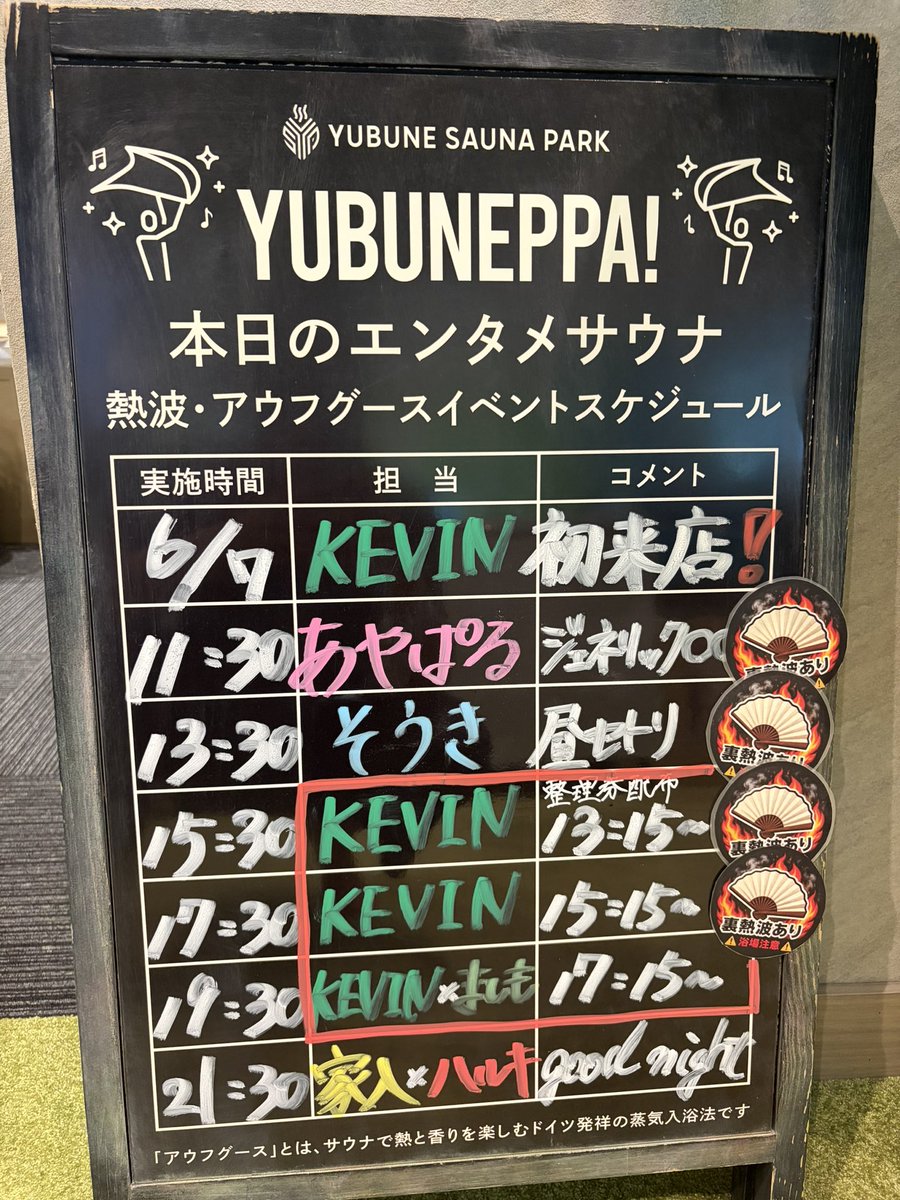 YUBUNE SAUNA PARK
YUBUNEPPA!
本日のエンタメサウナ
熱波・アウフグースイベントスケジュール
実施時間 担当 コメント
6/7 KEVIN 初来店!
11:30 あやぱる ジェネリック
裏熱波あり
13:30 そうき 昼セトリ
裏熱波あり
整理券配布
15:30 KEVIN 13:15~
裏熱波あり
17:30 KEVIN 15:15~
裏熱波あり
浴場注意
19:30 KEVIN×よしも 17:15~
21:30 家入×ハルキ good night
「アウフグース」とは、サウナで熱と香りを楽しむドイツ発祥の蒸気入浴法です